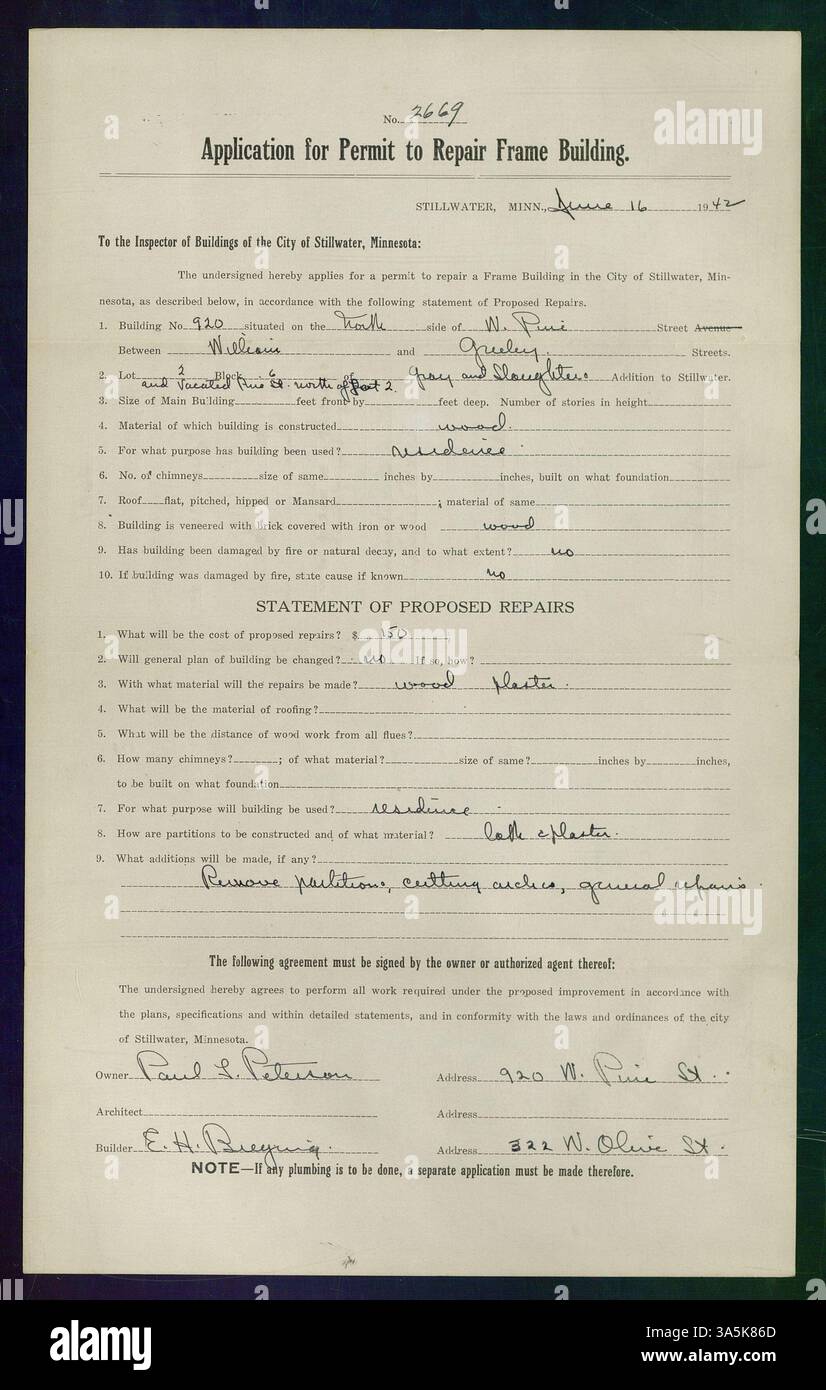 No. 2669
Application for Permit to Repair Frame Building.
STILLWATER, MINN., June 16 1942
To the Inspector of Buildings of the City of Stillwater, Minnesota:
The undersigned hereby applies for a permit to repair a Frame Building in the City of Stillwater, Min-
nesota, as described below, in accordance with the following statement of Proposed Repairs.
1. Building No. 920 situated on the North side of W. Pine Street Avenue
Between William and Greeley. Streets.
2. Lot 2 Block 6 of Gray and Slaughters Addition to Stillwater.
and Vacated Pine St. north of Lot 2.
3. Size of Main Building feet front by feet deep. Number of stories in height
4. Material of which building is constructed wood.
5. For what purpose has building been used? residence
6. No. of chimneys size of same inches by inches, built on what foundation
7. Roof flat, pitched, hipped or Mansard ; material of same
8. Building is veneered with brick covered with iron or wood wood
9. Has building been damaged by fire or natural decay, and to what extent? no
10. If building was damaged by fire, state cause if known no
STATEMENT OF PROPOSED REPAIRS
1. What will be the cost of proposed repairs? $ 150
2. Will general plan of building be changed? no If so, how?
3. With what material will the repairs be made? wood plaster.
4. What will be the material of roofing?
5. What will be the distance of wood work from all flues?
6. How many chimneys? ; of what material? size of same? inches by inches,
to be built on what foundation
7. For what purpose will building be used? residence
8. How are partitions to be constructed and of what material? lath & plaster.
9. What additions will be made, if any?
Remove partitions, cutting arches, general repairs.
The following agreement must be signed by the owner or authorized agent thereof:
The undersigned hereby agrees to perform all work required under the proposed improvement in accordance with
the plans, specifications and within detailed statements, and in conformity with the laws and ordinances of the city
of Stillwater, Minnesota.
Owner Paul L. Peterson Address 920 W. Pine St.
Architect Address
Builder E. H. Address 322 W. Olive St.
NOTE—If any plumbing is to be done, a separate application must be made therefore.
alamy
Image ID: 3A5K86D
www.alamy.com